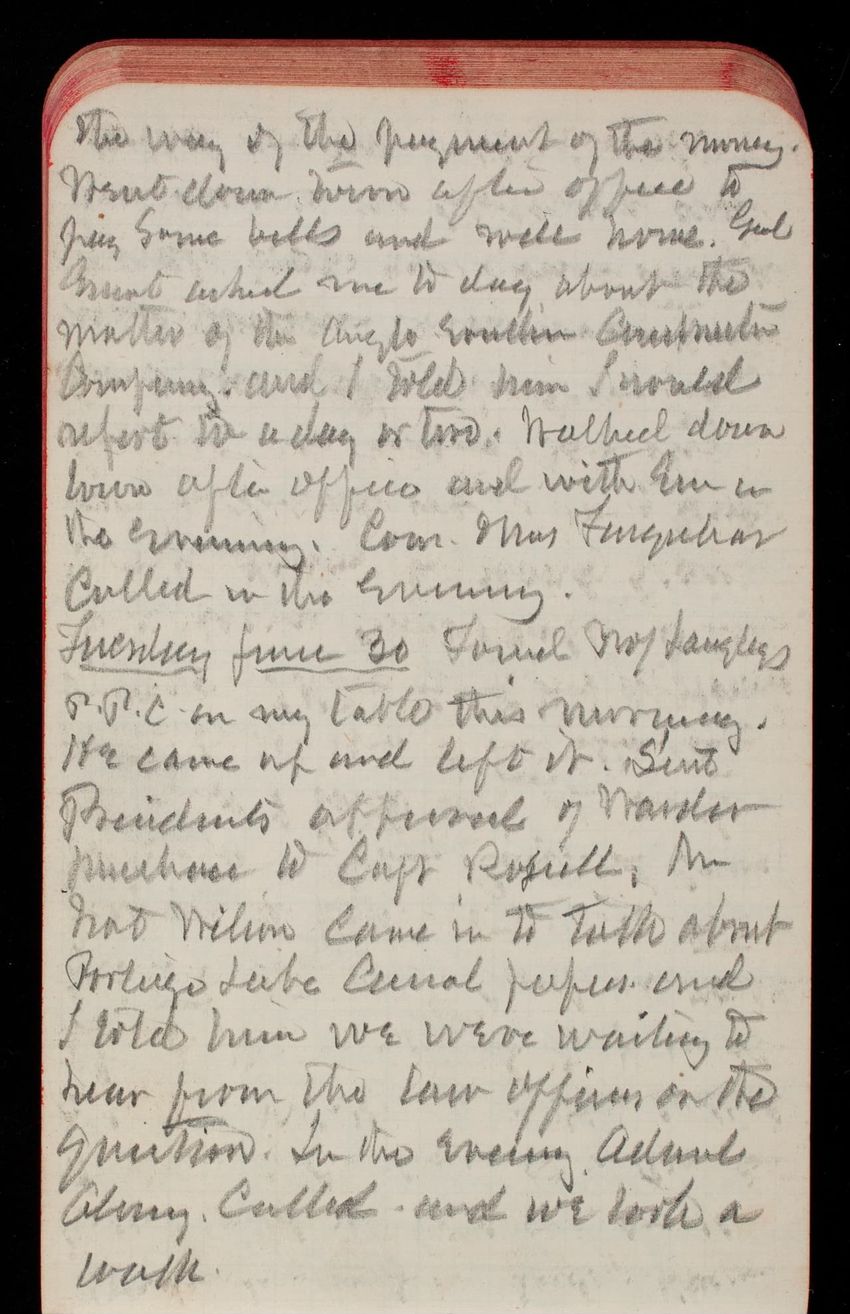 the way of the payment of the money.
Went down town after office to
pay some bills and well home. Genl
Grant asked me to day about the
matter of the Anglo Construction
Company. and I told him I would
report in a day or two. Walked down
town after office and with Em in
the Evening. Com. Mrs Farquhar
Called in the Evening.
Tuesday June 30 Found Prof Langleys
P.P.C. on my table this morning.
He came up and left it. Sent
Presidents approval of Warder
purchase to Capt Rossell, Mr
Nat Wilson Came in to talk about
Portage Lake Canal papers and
I told him we were waiting to
hear from the law officers on the
question. In the Evening
Alemy. Called and we took a
walk.